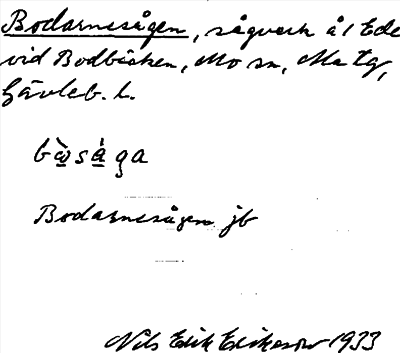 Bodarnesågen, sågverk å 1 Ede
vid Bodbäcken, Mo sn, Ma tg,
Gävleb. l.
bὼ̱sá̱ga
Bodarnesågen jb
Nils Erik Erikson 1933